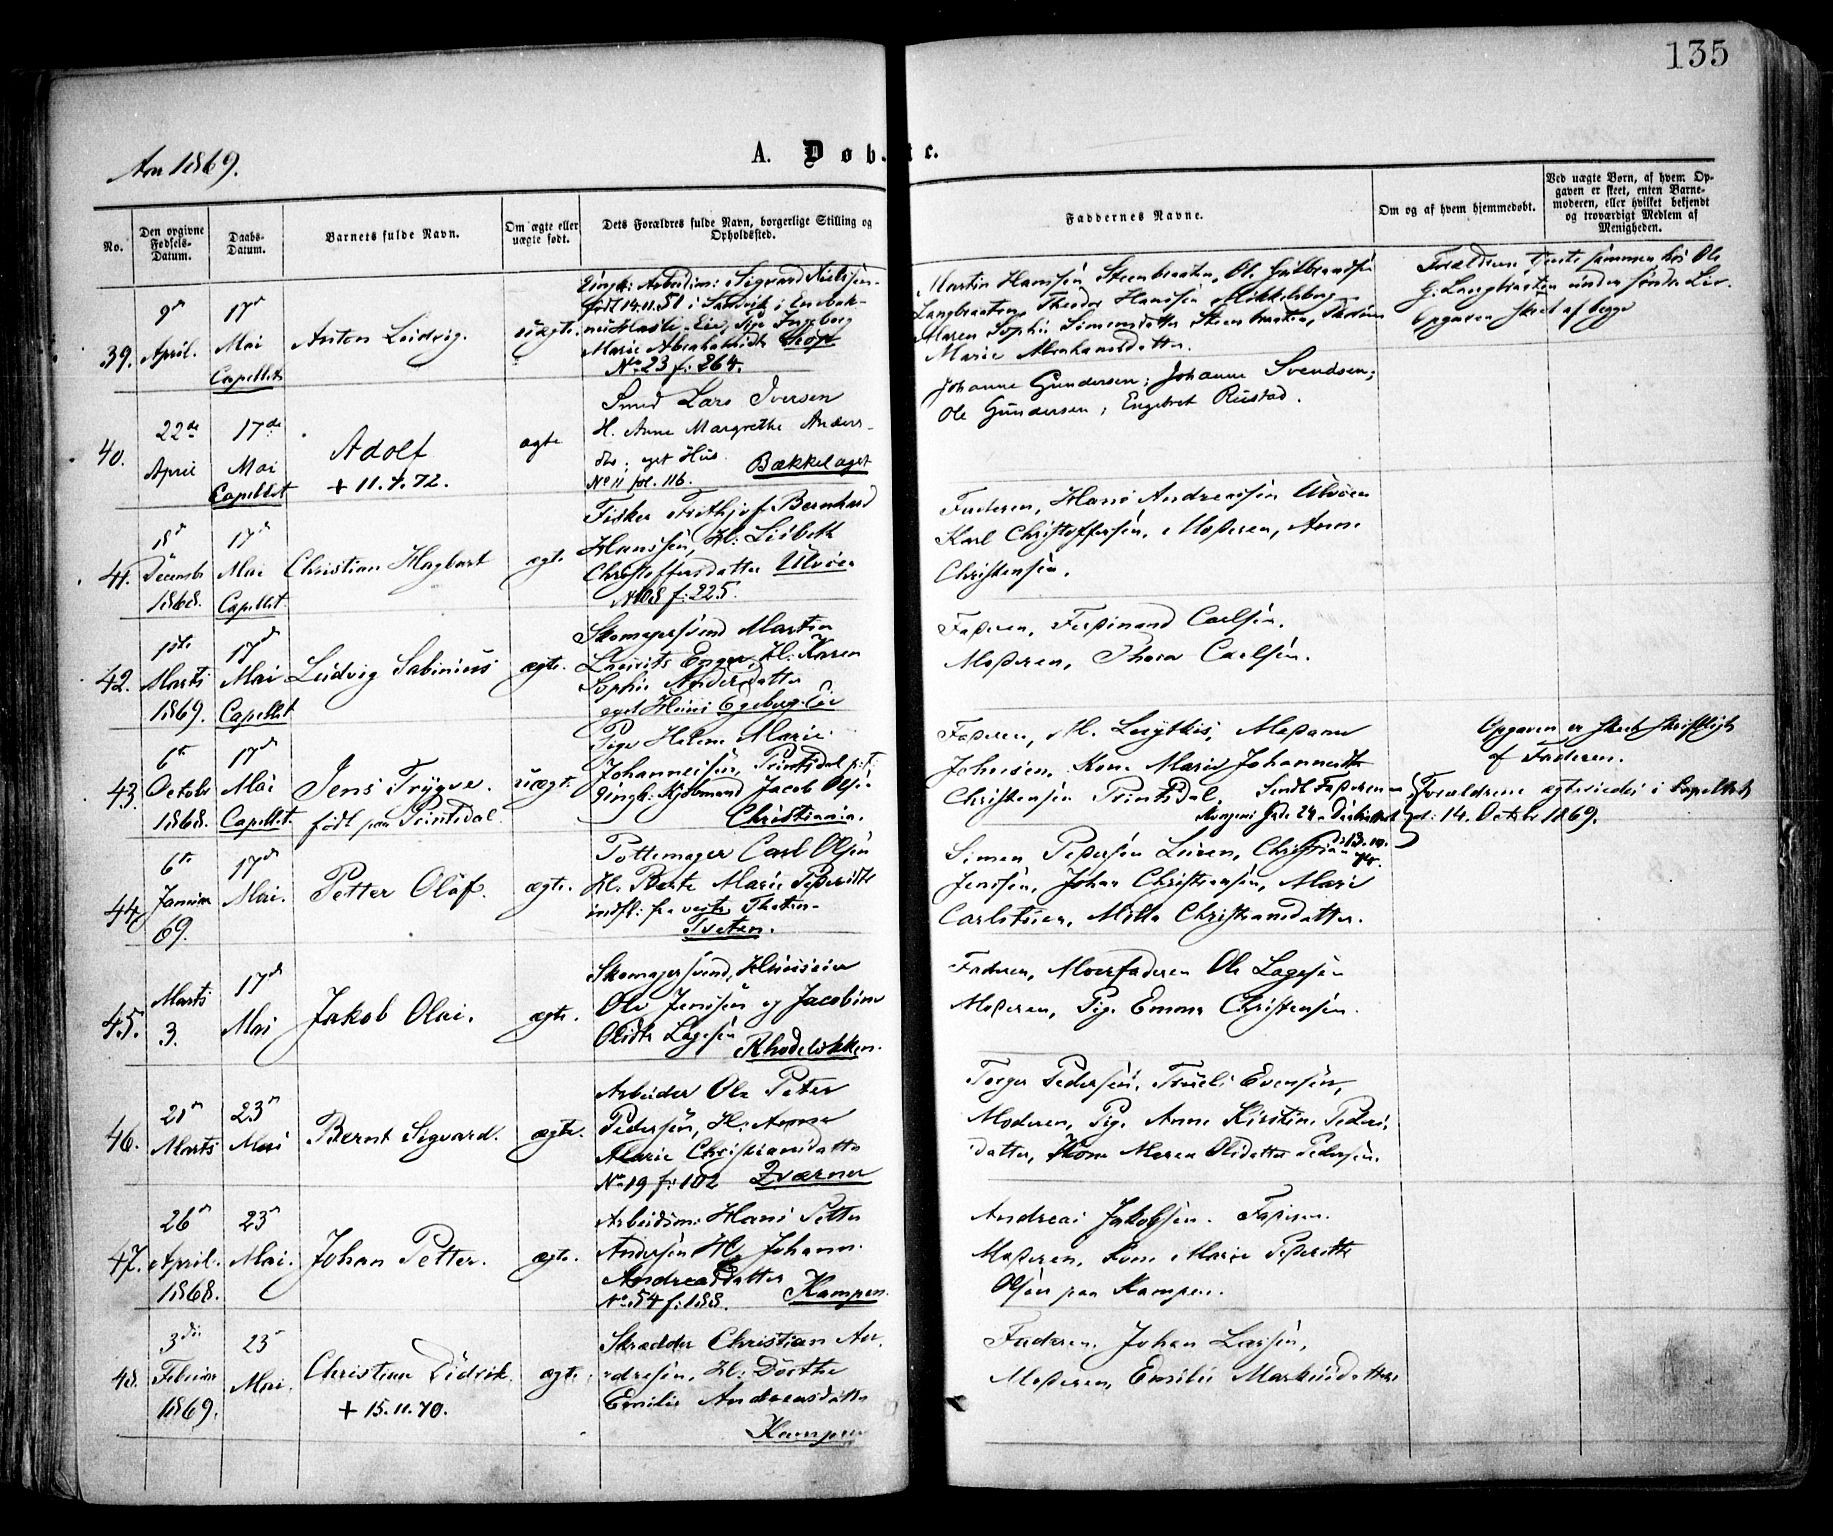 135
Aar 1869.
A. Døbte.
No.
Den opgivne Fødsels-Datum.
Daabs-Datum.
Barnets fulde Navn.
Om ægte eller uægte født.
Dets Forældres fulde Navn, borgerlige Stilling og Opholdssted.
Faddernes Navne.
Om og af hvem hjemmedøbt.
Ved uægte Børn, af hvem Opgaven er skeet, enten Barnemoderen, eller hvilket bekjendt og troværdigt Medlem af Menigheden.
39.
9de April.
17de Mai Capellet
Anton Ludvig.
uægte.
Ungk: Arbeidsm: Sigvard Nielsen
født 14.11.51 i
Pige Ingeborg
Marie Abrahamsdtr
No 23 f. 264.
Martin Hansen Steenbraaten, Ole Gulbrandsen
Langbraaten, Theodor Hansen Mikkelsberg
Maren Sophie Simensdatter Steenbraaten,
Marie Abrahamsdatter.
Forældrene tjente sammen hos Ole
G. Langbraaten under søndre
Opgaven skeet af begge
40.
22de April
17de Mai Capellet
Adolf
+ 11.4.72.
ægte
Smed Lars Iversen
H. Anne Margrethe Anders-
dtr; eget Hus.
No 11 fol. 116. Bækkelaget
Johanne Gundersen; Johanne Svendsen;
Ole Gundersen; Engebret Rustad.
41.
18d Decembr 1868.
17d Mai Capellet
Christian Hagbart
ægte.
Fisker Frithjof Bernhard
Hanssen, H: Lisbeth
Christoffersdatter Ulvøen
No 108 f: 225.
Faderen, Hans Andreassen Ulvøen
Karl Christoffersen, Moderen, Anne
Christensen.
42.
1ste Marts 1869.
17d Mai Capellet
Ludvig Sabinius
ægte.
Skomagersvend Martin
Laurits Enger, H: Karen
Sophie Andersdatter
eget Huus Egeberg Eie
Faderen, Ferdinand Carlsen.
Moderen, Thora Carlsen.
43.
6te Octobr 1868.
17d Mai Capellet.
Jens Trygve.
født paa Printsdal.
uægt.
Pige Helene Marie
Johannesen, Printsdal
Ungk: Kjøbmand Jacob Olsen
Christiania.
Faderen, Madame
Johnsen, Kone Marie Johannesdtr
Christensen Printsdal.
Opgaven er skeet skriftligt
af Faderen.
Forældrene ægteviedes i Capellet
d: 14. Octbr 1869.
44.
6te Januar 69.
17d Mai.
Petter Olaf.
ægte.
Pottemager Carl Olsen
H. Berte Marie Pedersdtr
indfl: fra
Tveten.
Simen Pedersen Leiren, Christian
Jensen, Johan Christensen, Marie
Mille Christiansdatter.
45.
Marts 3.
17d Mai
Jakob Olai.
ægte.
Skomagersvend, Huuseier
Ole Jensen og Jacobine
Olsdtr Lagesen
Rhodeløkken.
Faderen, Morfaderen Ole Lagesen
Moderen, Pige Emma Christensen.
46.
21n Marts
23n Mai
Bernt Sigvard.
ægte.
Arbeider Ole Peter
Pedersen, H: Anne
Marie Christiansdatter
No 19 f: 102 Qværner
Torger Pedersen, Truls Evensen,
Moderen, Pige Anne Kirstine Peders-
datter, Kone Maren Olsdatter Pedersen.
47.
26n April. 1868.
23n Mai.
Johan Petter.
ægte.
Arbeidsm: Hans Petter
Andersen H: Johanne
Andreasdatter
No: 54 f: 188. Kampen.
Andreas Jakobsen. Faderen.
Moderen, Kone Marie Pedersdtr
Olsen paa Kampen.
48.
3die Februar 1869.
23 Mai.
Christian Didrik.
+ 15.11.70.
ægte.
Skrædder Christian An-
dresen, H: Dorthe
Emilie Andreasdatter
Kampen
Faderen. Johan Larsen,
Moderen, Emilie Markusdatter